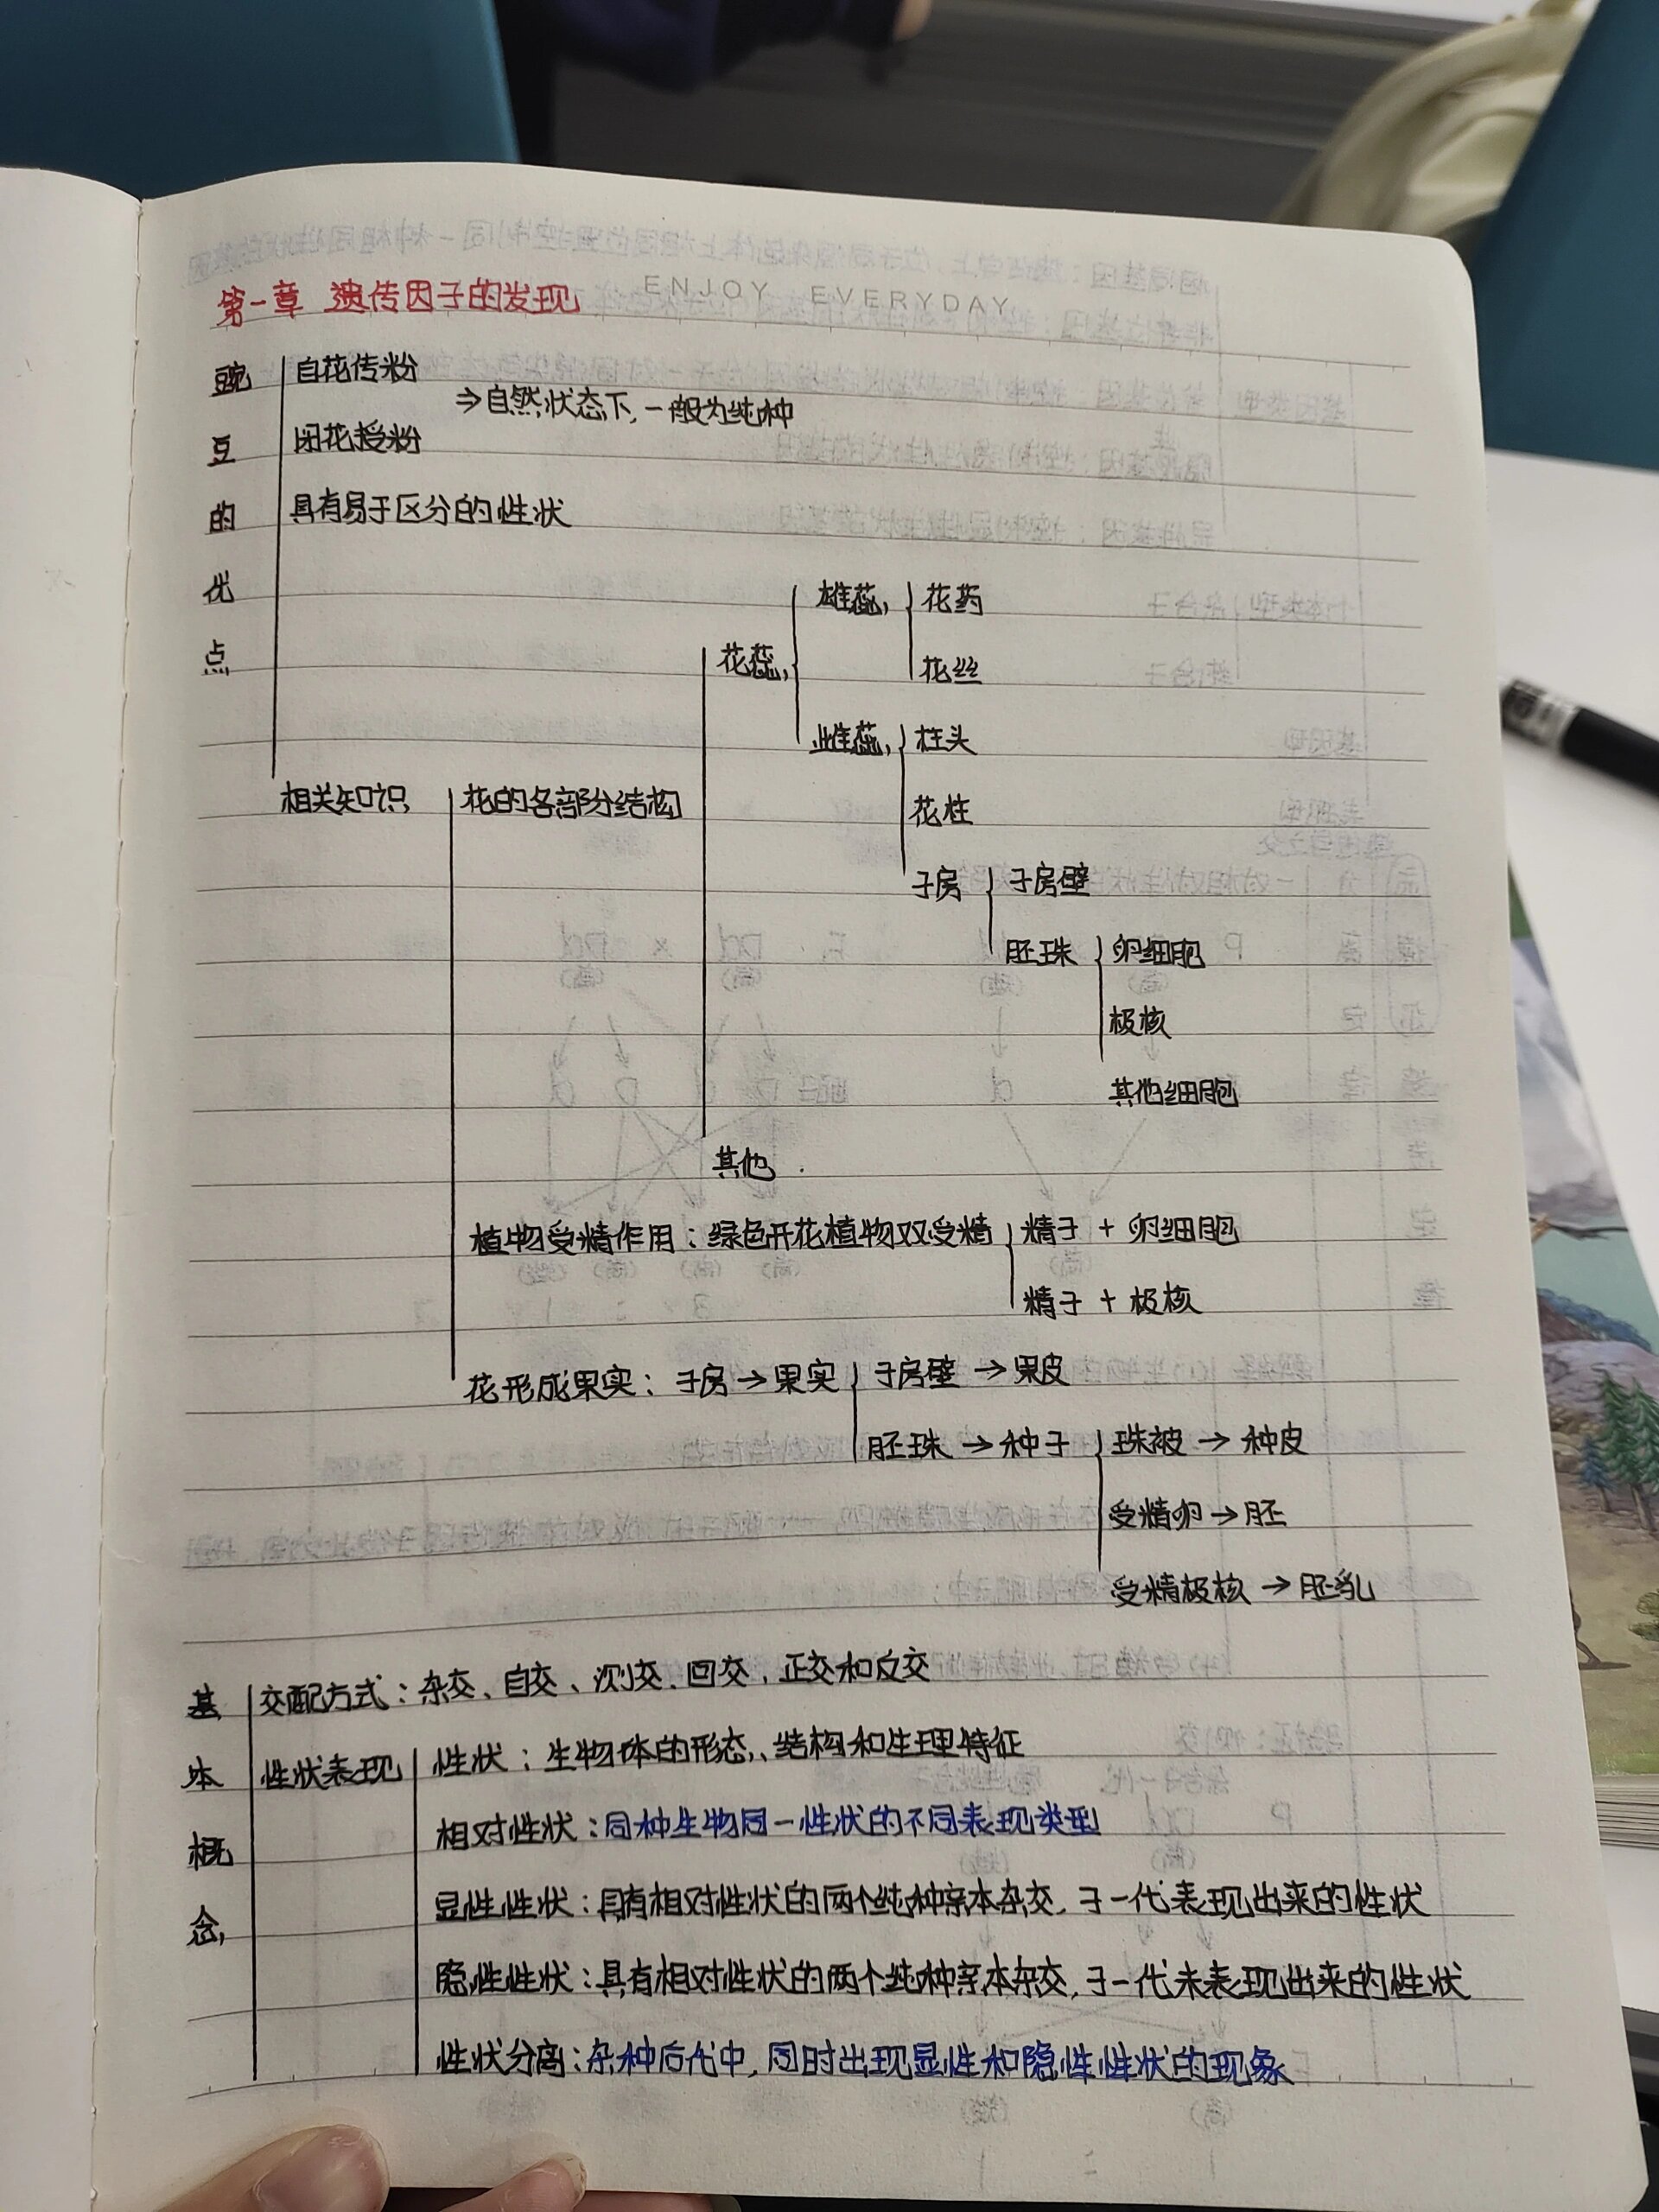 ENJOY EVERYDAY
第一章 遗传因子的发现
豌豆的优点
自花传粉
⇒自然状态下,一般为纯种
闭花授粉
具有易于区分的性状
雄蕊 花药
花蕊
花丝
雌蕊 柱头
相关知识 花的各部分结构
花柱
子房 子房壁
胚珠 卵细胞
极核
其他细胞
其他
植物受精作用:绿色开花植物双受精 精子 + 卵细胞
精子 + 极核
花形成果实:子房→果实 子房壁→果皮
胚珠→种子 珠被→种皮
受精卵→胚
受精极核→胚乳
基本概念
交配方式:杂交、自交、测交、回交,正交和反交
性状表现 性状:生物体的形态、结构和生理特征
相对性状:同种生物同一性状的不同表现类型
显性性状:具有相对性状的两个纯种亲本杂交,子一代表现出来的性状
隐性性状:具有相对性状的两个纯种亲本杂交,子一代未表现出来的性状
性状分离:杂种后代中,同时出现显性和隐性性状的现象